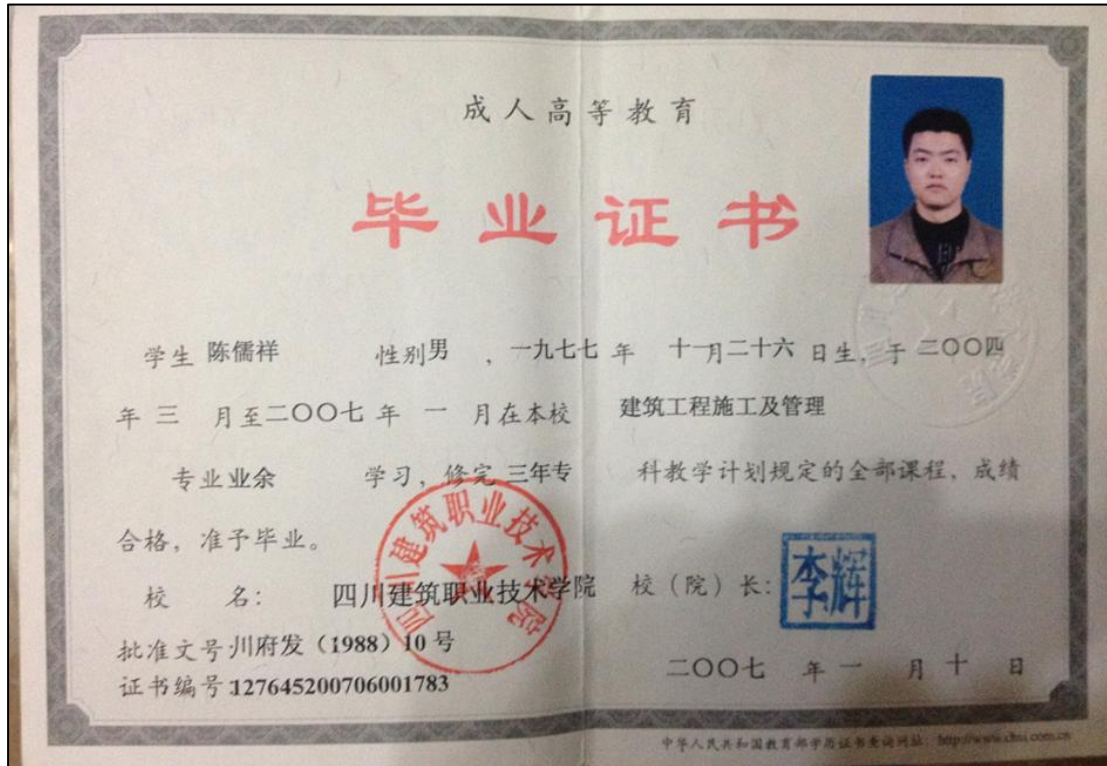 成人高等教育
毕业证书
学生 陈儒祥 性别 男 , 一九七七 年 十一月二十六 日生, 于 二〇〇四
年 三 月至二〇〇七 年 一 月在本校 建筑工程施工及管理
专业 业余 学习, 修完 三年专 科教学计划规定的全部课程, 成绩
合格, 准予毕业。
校 名: 四川建筑职业技术学院 校(院)长: 李辉
批准文号:川府发(1988)10号
证书编号:127645200706001783
二〇〇七 年 一 月 十 日
四川建筑职业技术学院
中华人民共和国教育部学历证书查询网址: http://www.chsi.com.cn